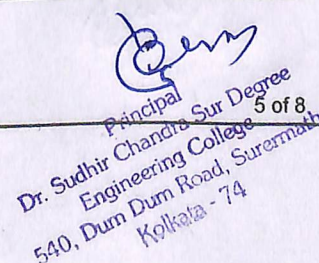 Principal
5 of 8
Dr. Sudhir Chandra Sur Degree
Engineering College
540, Dum Dum Road, Surermath
Kolkata - 74